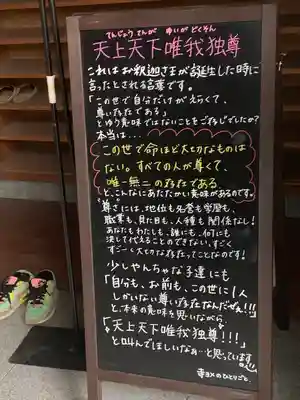 てんじょう てんが ゆいが どくそん
天上天下唯我独尊
これはお釈迦さまが誕生した時に
言ったとされる言葉です。
「この世で自分だけがえらくて、
尊い存在である」
とゆう意味ではないことをご存じでしたか?
本当は…
"この世で命ほど大切なものは
ない。すべての人が尊くて、
唯一無二の存在である"
と、こんなにあたたかい意味があるのです。
"尊さ"には、地位も名誉も学歴も、
職業も、見た目も、人種も関係なし!
あなたもわたしも、誰にも、何にも
決して代えることのできない、すごく
すごーく大切な存在ってことなのです!
少しやんちゃな子達にも
「自分も、お前も、この世に1人
しかいない尊い存在なんだぜん!!!」
と、本来の意味を思いながら、
"天上天下唯我独尊!!!"
と叫んでほしいなぁ…と思っています
寺ヨメのひとりごと。